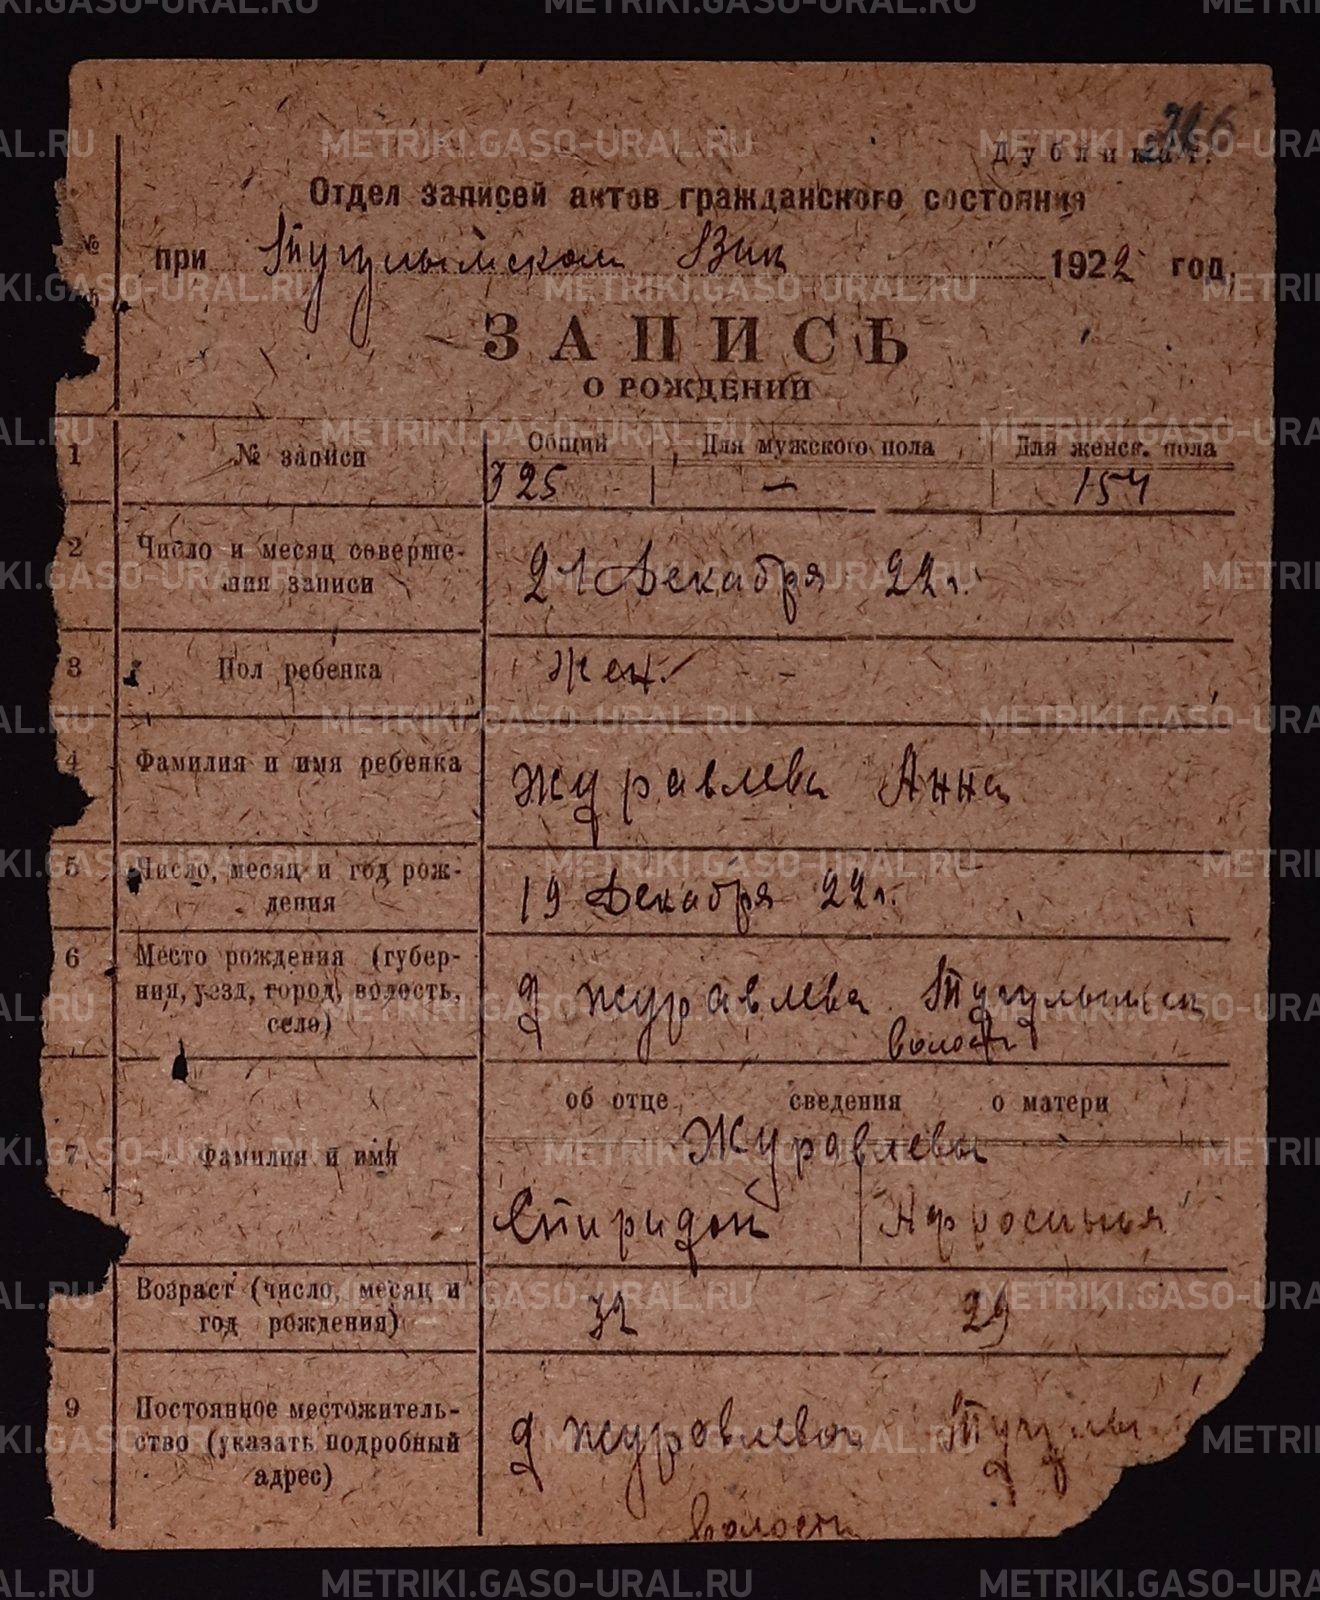 Дубликат.
Отдел записей актов гражданского состояния
№
при Тугулымском Вик 1922 год.
ЗАПИСЬ
О РОЖДЕНИИ
1 № записи Общий Для мужского пола Для женск. пола
325 — 154
2 Число и месяц соверше-
ния записи 21 Декабря 22 г.
3 Пол ребенка жен.
4 Фамилия и имя ребенка Журавлева Анна
5 Число, месяц и год рож-
дения 19 Декабря 22 г.
6 Место рождения (губер-
ния, уезд, город, волость,
село) д Журавлева Тугулымск
волости
об отце сведения о матери
7 Фамилия и имя Журавлевы
Спиридон Афросинья
Возраст (число, месяц и
год рождения) 32 29
9 Постоянное местожитель-
ство (указать подробный
адрес) д Журавлева Тугулы
волости
METRIKI.GASO-URAL.RU